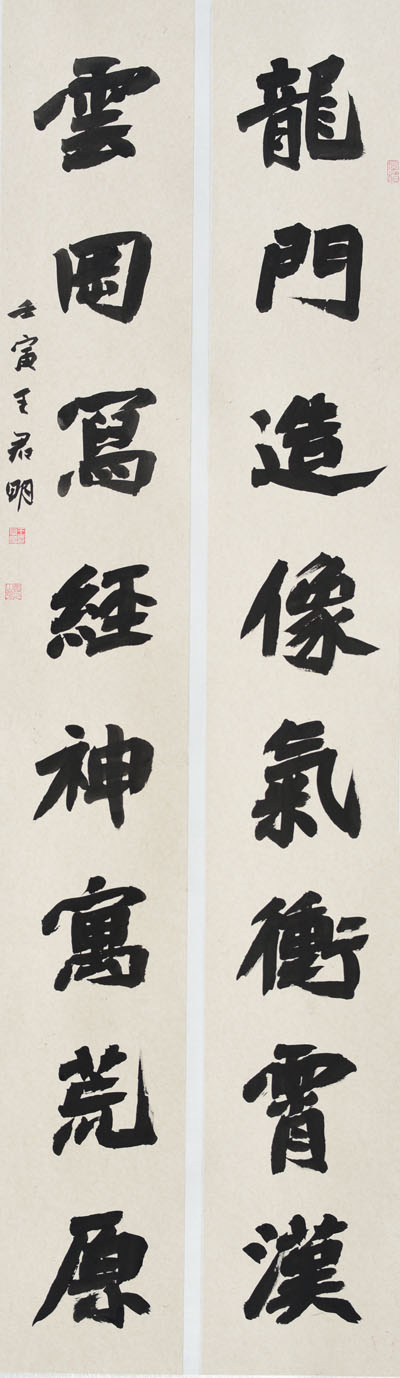 龍門造像氣衝霄漢
雲岡寫經神寓荒原
壬寅王君明